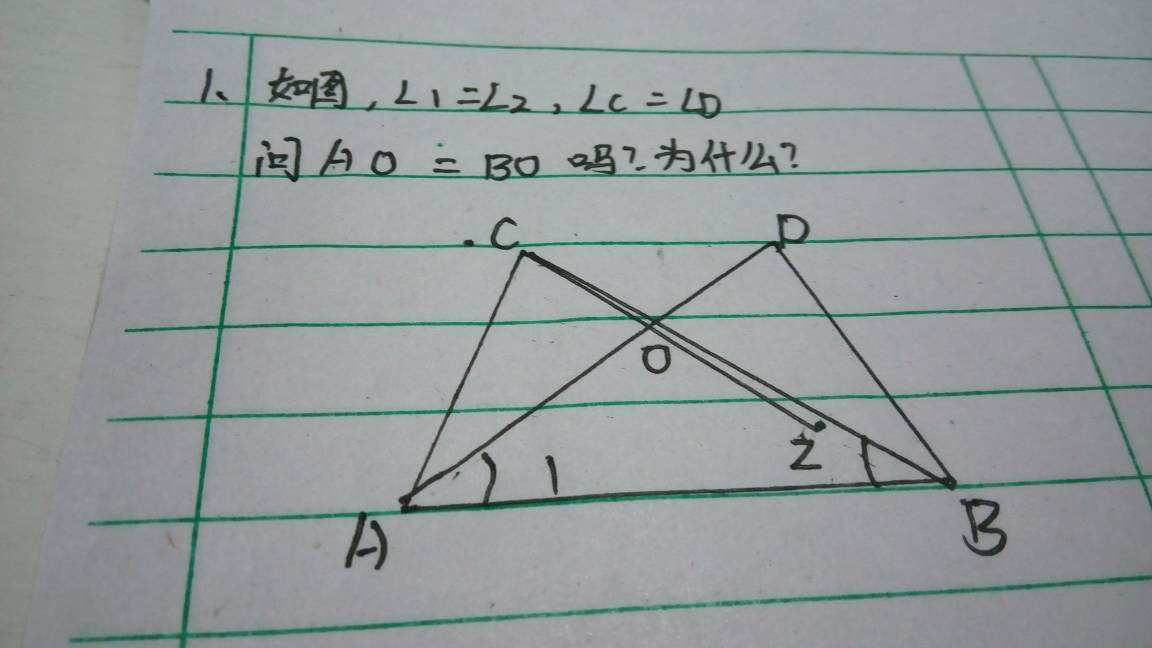 1、如图，∠1=∠2，∠C=∠D
问AO=BO吗？为什么？
C D
O
1 2
A B